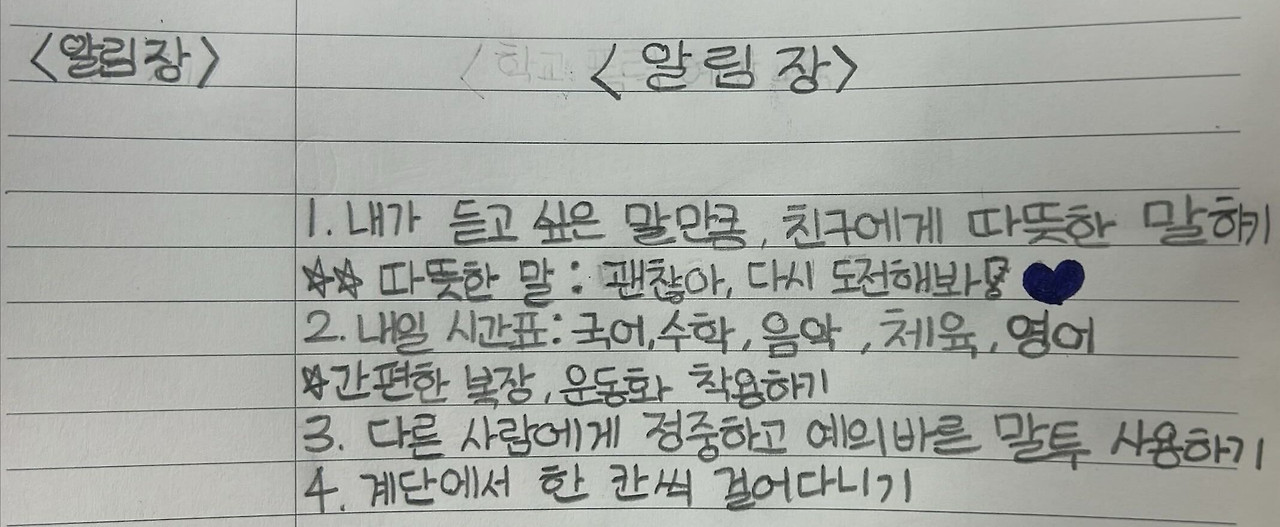 <알림장> <알림장>
1. 내가 듣고 싶은 말만큼, 친구에게 따뜻한 말하기
☆☆ 따뜻한 말 : 괜찮아, 다시 도전해봐! ♥
2. 내일 시간표: 국어, 수학, 음악, 체육, 영어
☆간편한 복장, 운동화 착용하기
3. 다른 사람에게 정중하고 예의바른 말투 사용하기
4. 계단에서 한 칸씩 걸어다니기